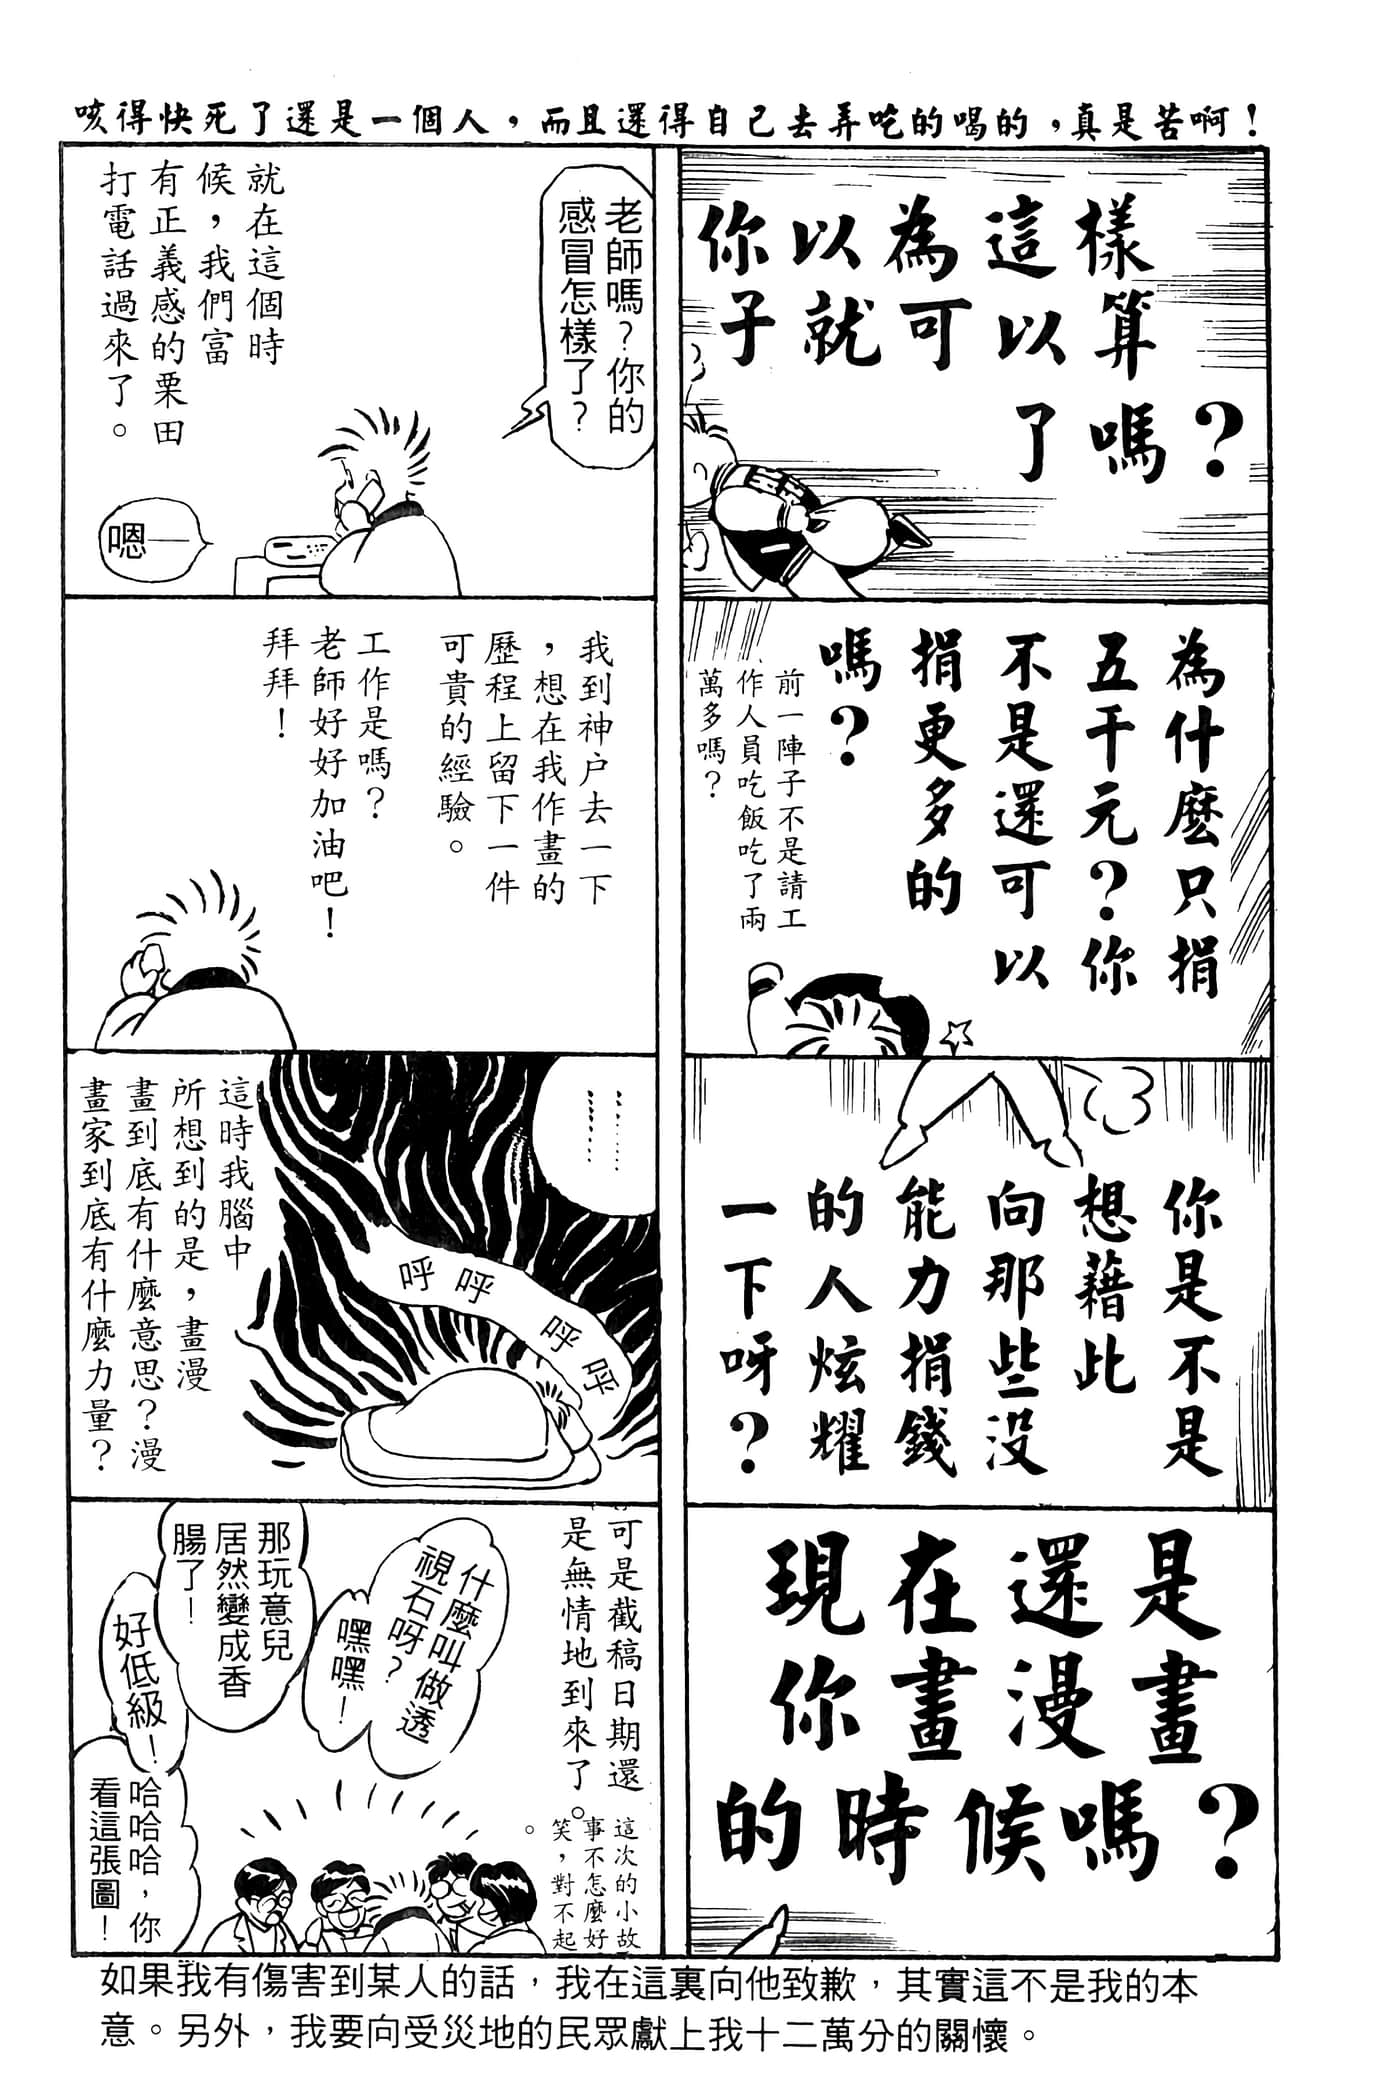 咳得快死了還是一個人，而且還得自己去弄吃的喝的，真是苦啊！
你以為這樣
子就可以算
了嗎？
為什麼只捐
五千元？你
不是還可以
捐更多的
嗎？
前一陣子不是請工
作人員吃飯吃了兩
萬多嗎？
你是不是
想藉此
向那些沒
能力捐錢
的人炫耀
一下呀？
現在還是
你畫漫畫
的時候嗎？
老師嗎？你的
感冒怎樣了？
就在這個時
候，我們富
有正義感的栗田
打電話過來了。
嗯──
我到神戶去一下
，想在我作畫的
歷程上留下一件
可貴的經驗。
工作是嗎？
老師好好加油吧！
拜拜！
………
………
呼呼呼呼
這時我腦中
所想到的是，畫漫
畫到底有什麼意思？漫
畫家到底有什麼力量？
可是截稿日期還
是無情地到來了。
這次的小故
事不怎麼好
笑，對不起
。
什麼叫做透
視石呀？
嘿嘿！
那玩意兒
居然變成香
腸了！
好低級！
哈哈哈，你
看這張圖！
如果我有傷害到某人的話，我在這裏向他致歉，其實這不是我的本
意。另外，我要向受災地的民眾獻上我十二萬分的關懷。